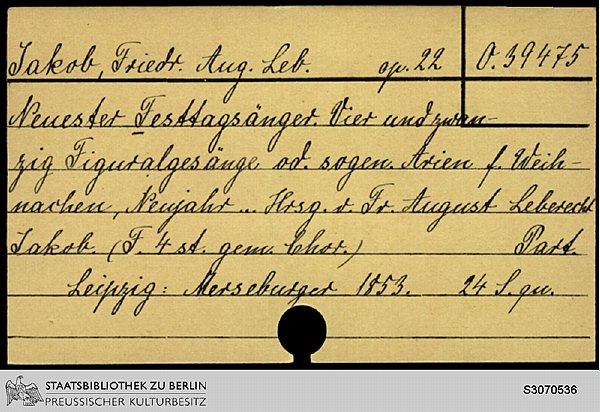 Jakob, Friedr. Aug. Leb. op. 22 O. 39475
Neuester Festtagsänger. Vier und zwan-
zig Figuralgesänge od. sogen. Arien f. Weih-
nachen, Neujahr ... Hrsg. v. Fr. August Leberecht
Jakob. (F. 4 st. gem. Chor.) Part.
Leipzig: Merseburger 1853. 24 S. qu.
STAATSBIBLIOTHEK ZU BERLIN
PREUSSISCHER KULTURBESITZ
S3070536